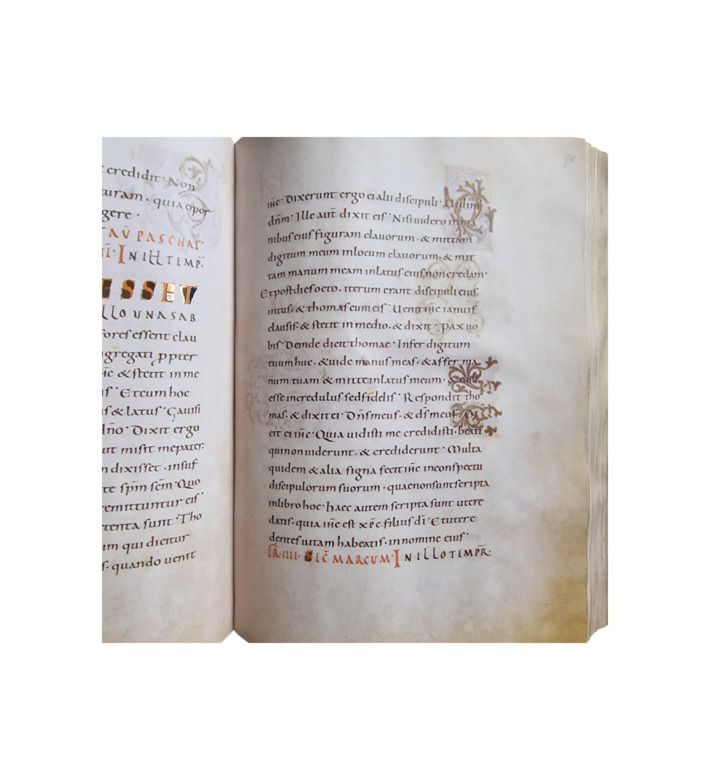 credidit · Non
turam · quia opor
gere ·
AŪ PASCHAE·
IN ILL TEMP̄·
ISSET
LLO UNA SAB
fores essent clau
gregati ppter
ic & stetit in me
is · Et cum hoc
s & latus · Gauisi
dn̄o · Dixit ergo
ut misit me pater·
m dixisset · insuf
te sp̄m sc̄m · Quo
remittuntur eis·
retenta sunt · Tho
m qui dicitur
s · quando uenit
ih̄c · Dixerunt ergo ei alii discipuli · Uidim
dn̄m · Ille aut̄ dixit eis · Nisi uidero in ma
nibus eius figuram clauorum · & mittam
digitum meum in locum clauorum · & mit
tam manum meam in latus eius non credam·
Et post dies octo · iterum erant discipuli eius
intus · & thomas cum eis · Uenit ih̄c ianuis
clausis · & stetit in medio · & dixit · pax uo
bis · Deinde dicit thomae · Infer digitum
tuum huc · & uide manus meas · & affer ma
num tuam & mitte in latus meum · & noli
esse incredulus sed fidelis · Respondit tho
mas · & dixit ei · Dn̄s meus · & ds̄ meus · Di
cit ei ih̄c · Quia uidisti me credidisti · beati
qui non uiderunt · & crediderunt · Multa
quidem & alia signa fecit ih̄c in conspectu
discipulorum suorum · quae non sunt scripta
in libro hoc · haec autem scripta sunt ut cre
datis · quia ih̄c est xp̄c filius dī · Et ut cre
dentes uitam habeatis · in nomine eius ·
FR̄ IIII · SEC̄ MARCUM · IN ILLO TEMPR̄·